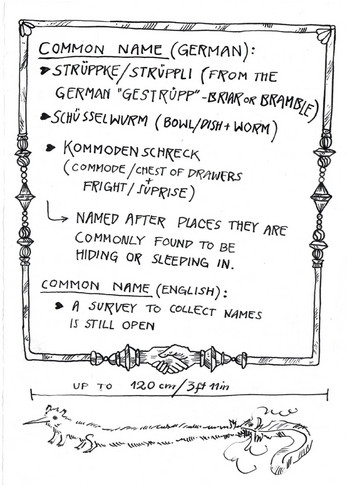 COMMON NAME (GERMAN):
STRÜPPKE/STRÜPPLI (FROM THE
GERMAN "GESTRÜPP"-BRIAR OR BRAMBLE)
SCHÜSSELWURM (BOWL/DISH + WORM)
KOMMODENSCHRECK
(COMMODE/CHEST OF DRAWERS
+
FRIGHT/SUPRISE)
NAMED AFTER PLACES THEY ARE
COMMONLY FOUND TO BE
HIDING OR SLEEPING IN.
COMMON NAME (ENGLISH):
A SURVEY TO COLLECT NAMES
IS STILL OPEN
UP TO 120 cm/3ft 11in